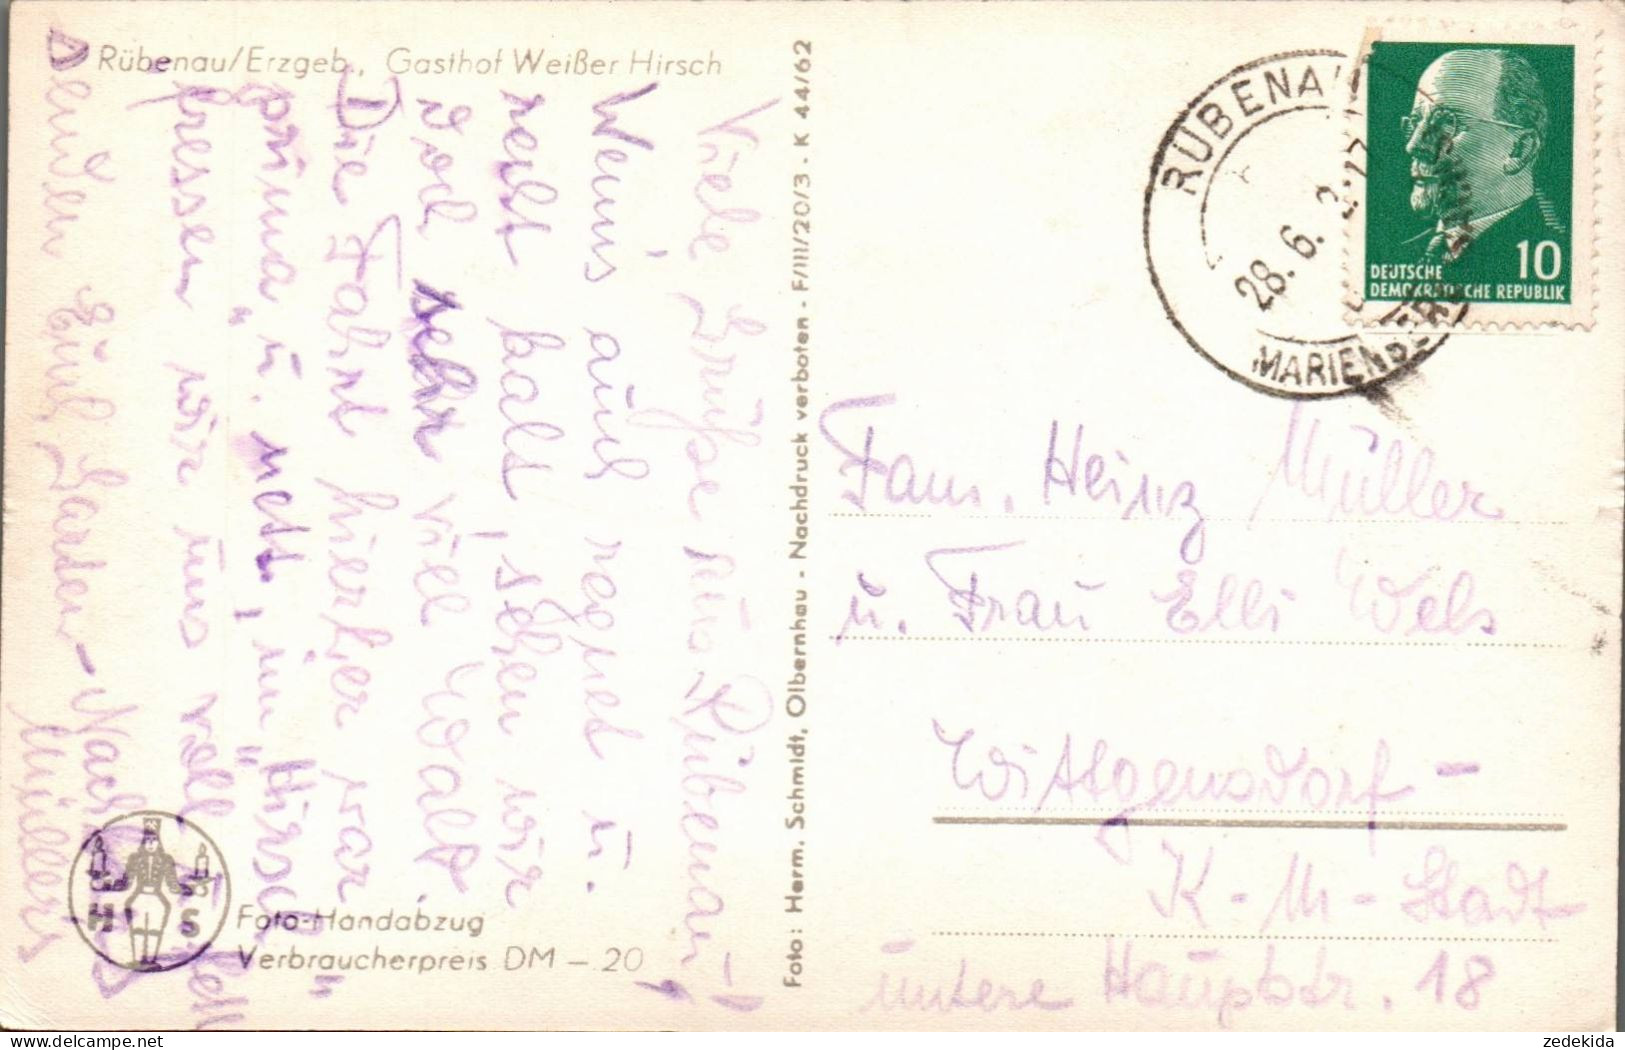 Rübenau/Erzgeb., Gasthof Weißer Hirsch
Viele Grüße aus Rübenau!
Wenns auch regnet u.
recht kalt, sehen wir
doch sehr viel Wald.
Die Fahrt hierher war
prima u. nett, im "Hirsch"
fressen wir uns voll u. fett
Denken Eure Garten-Nachb.
Müllers
H S
Foto-Handabzug
Verbraucherpreis DM – 20
Foto: Herm. Schmidt, Olbernhau - Nachdruck verboten - F/III/20/3 - K 44/62
RÜBENAU
28.6.
MARIENBERG
10
DEUTSCHE
DEMOKRATISCHE REPUBLIK
Fam. Heinz Müller
u. Frau Elli Wels
Wittgensdorf -
K - M - Stadt
untere Hauptstr. 18
zedekida